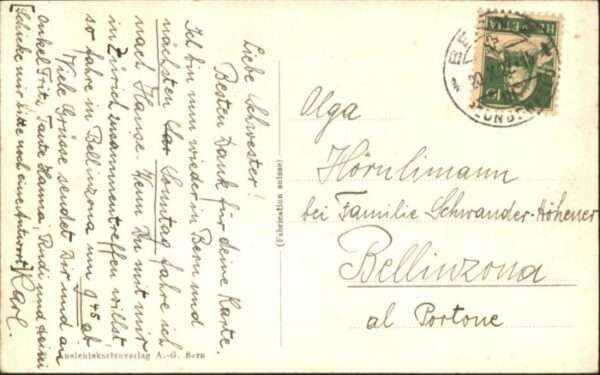 Liebe Schwester!
Besten Dank für deine Karte.
Ich bin nun wieder in Bern und
nächsten Sonntag fahre ich
nach Hause. Wenn Du mit mir
in Zürich zusammentreffen willst,
so fahre in Bellinzona um 9 45 ab
Viele Grüsse sendet Dir und an
Onkel Fritz, Tante Hanna, Rudi und Heini
Karl.
[Schicke mir bitte noch eine Antwort]
Ansichtskartenverlag A.-G. Bern
HELVETIA
Olga
Hörnlimann
bei Familie Schwander-Höhener
Bellinzona
al Portone